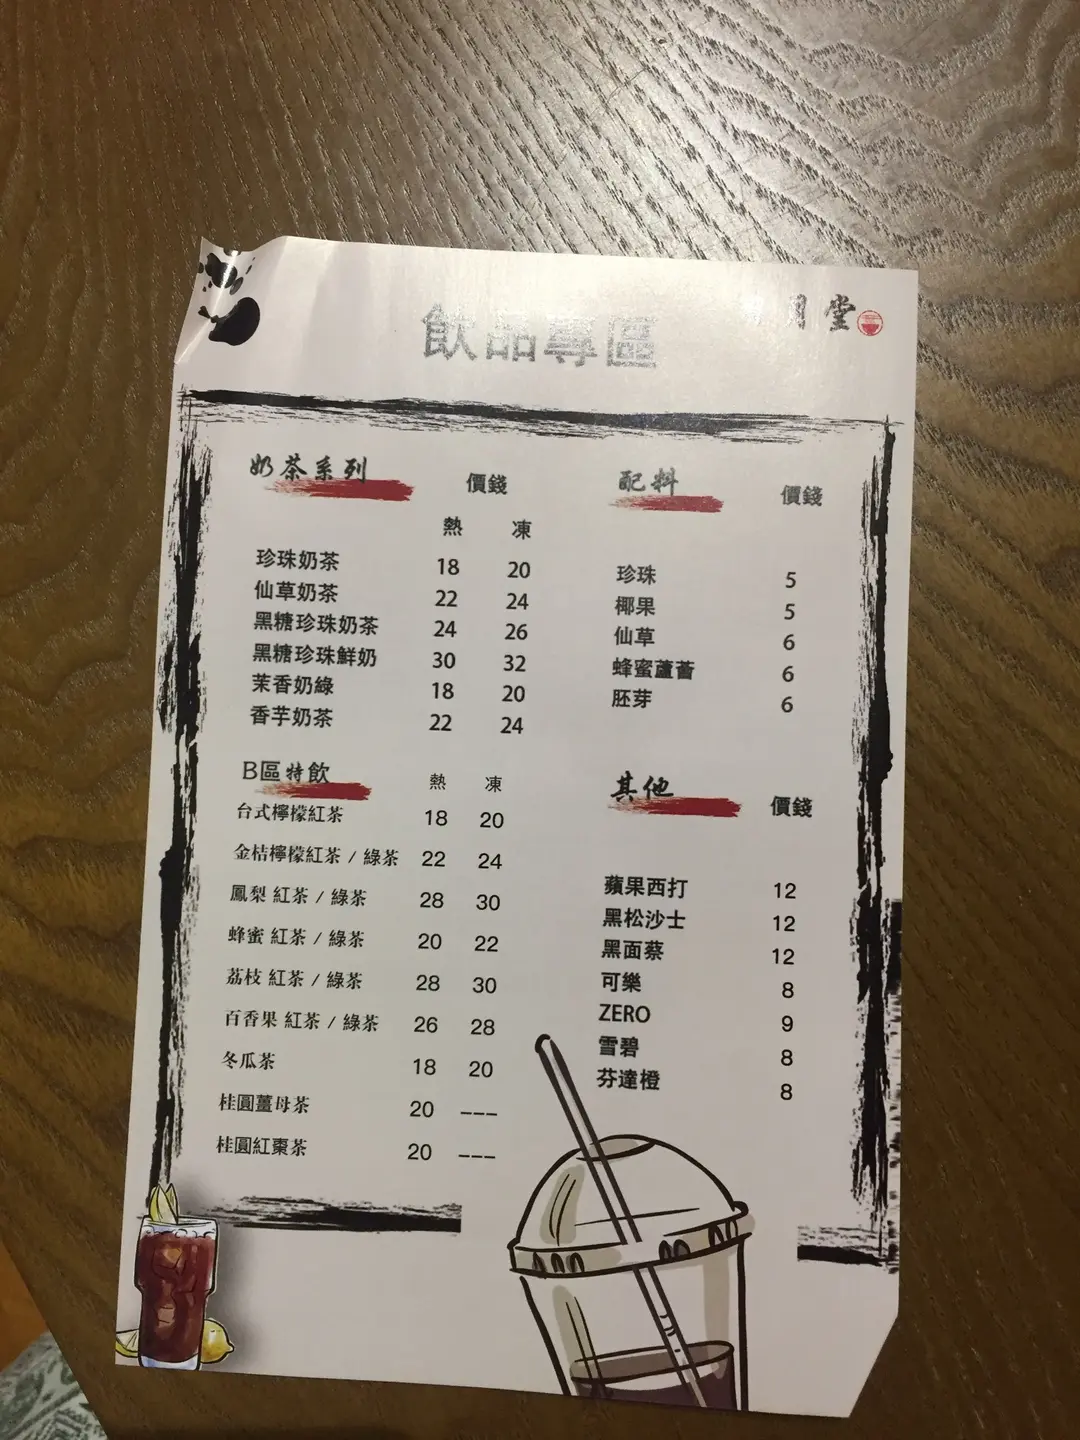 月堂
飲品專區
奶茶系列 價錢
熱 凍
珍珠奶茶 18 20
仙草奶茶 22 24
黑糖珍珠奶茶 24 26
黑糖珍珠鮮奶 30 32
茉香奶綠 18 20
香芋奶茶 22 24
B區特飲 熱 凍
台式檸檬紅茶 18 20
金桔檸檬紅茶 / 綠茶 22 24
鳳梨 紅茶 / 綠茶 28 30
蜂蜜 紅茶 / 綠茶 20 22
荔枝 紅茶 / 綠茶 28 30
百香果 紅茶 / 綠茶 26 28
冬瓜茶 18 20
桂圓薑母茶 20 ---
桂圓紅棗茶 20 ---
配料 價錢
珍珠 5
椰果 5
仙草 6
蜂蜜蘆薈 6
胚芽 6
其他 價錢
蘋果西打 12
黑松沙士 12
黑面蔡 12
可樂 8
ZERO 9
雪碧 8
芬達橙 8